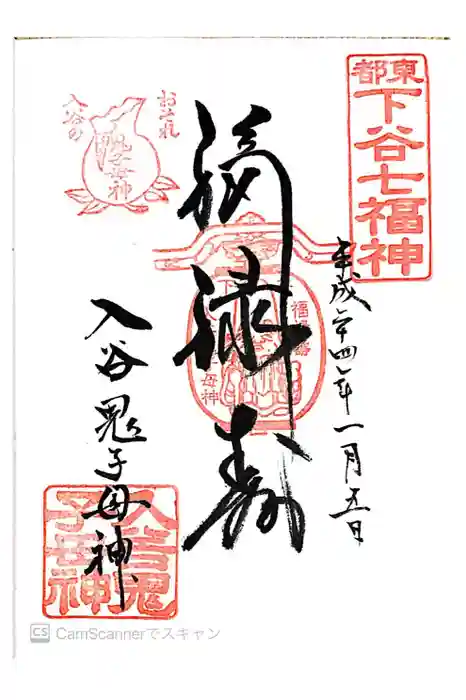 東都
下谷七福神
平成二十四年一月五日
福禄寿
おそれ
入谷の
鬼子母神
入谷鬼子母神
入谷鬼
子母神
CS CamScannerでスキャン